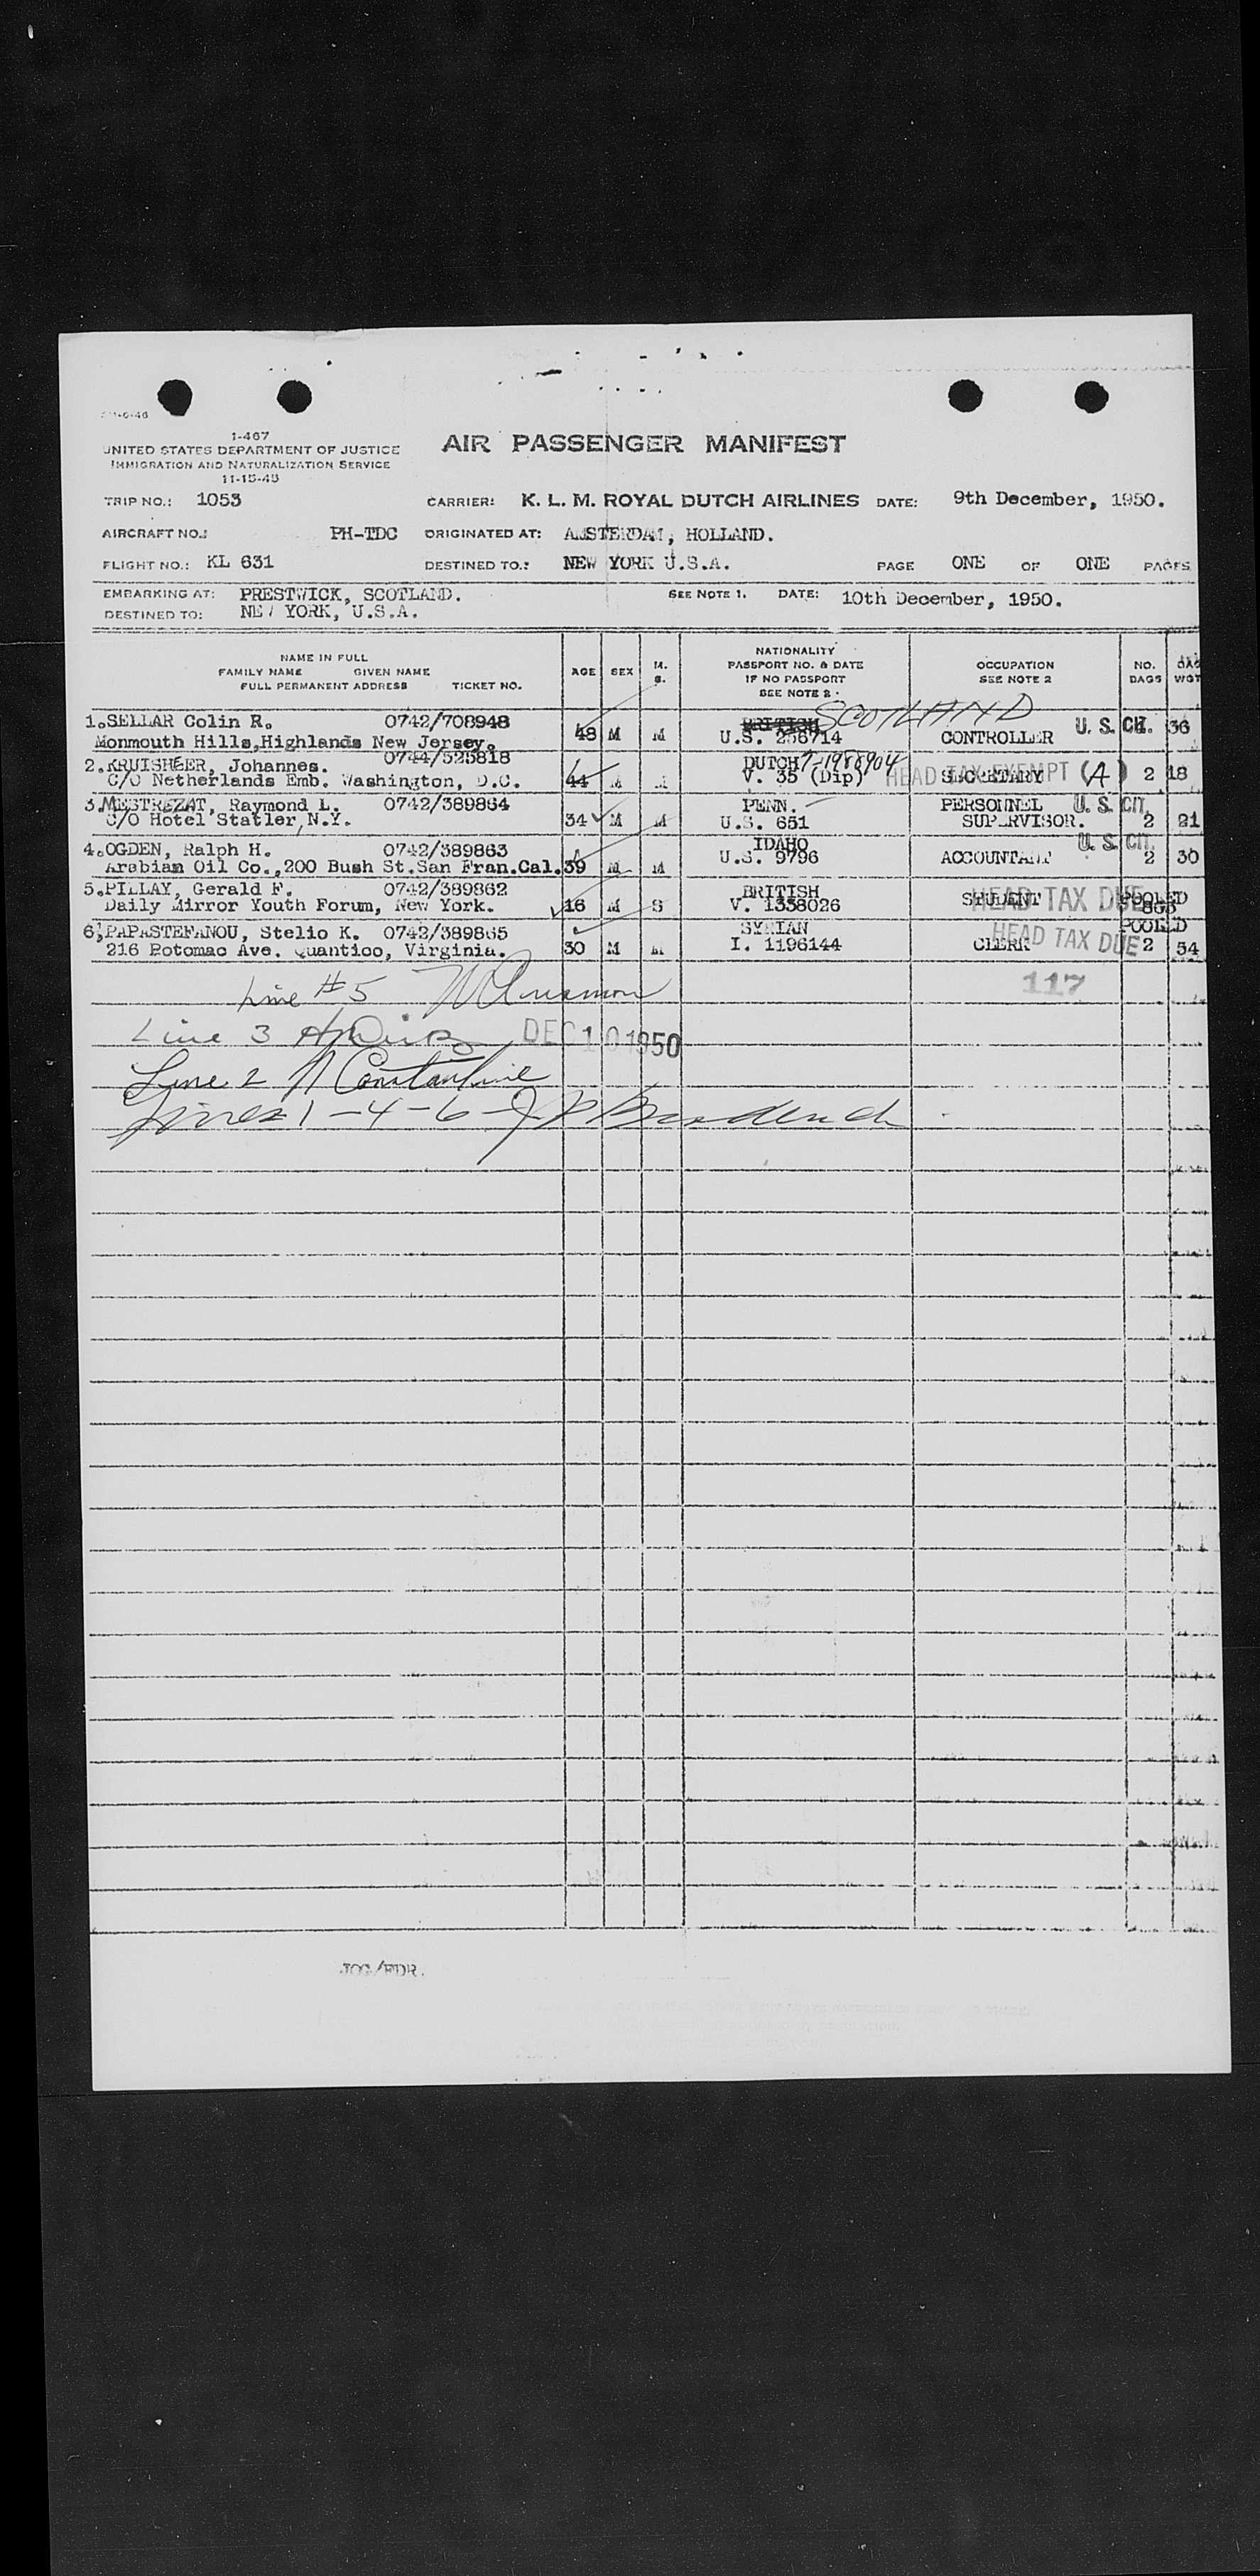 1-467
UNITED STATES DEPARTMENT OF JUSTICE
IMMIGRATION AND NATURALIZATION SERVICE
11-15-45
AIR PASSENGER MANIFEST
TRIP NO.: 1053 CARRIER: K. L. M. ROYAL DUTCH AIRLINES DATE: 9th December, 1950.
AIRCRAFT NO.: PH-TDC ORIGINATED AT: AMSTERDAM, HOLLAND.
FLIGHT NO.: KL 631 DESTINED TO.: NEW YORK U.S.A. PAGE ONE OF ONE PAGES
EMBARKING AT: PRESTWICK, SCOTLAND. SEE NOTE 1. DATE: 10th December, 1950.
DESTINED TO: NEW YORK, U.S.A.
NAME IN FULL
FAMILY NAME GIVEN NAME
FULL PERMANENT ADDRESS TICKET NO.
AGE SEX M. S.
NATIONALITY
PASSPORT NO. & DATE
IF NO PASSPORT
SEE NOTE 2.
OCCUPATION
SEE NOTE 2
NO. BAGS
BAG WGT
1. SELLAR Colin R. 0742/708948 48 M M BRITISH SCOTLAND U. S. CIT. 36
Monmouth Hills, Highlands New Jersey. U.S. 256714 CONTROLLER
2. KRUISHEER, Johannes. 0744/525818 DUTCH 7-1988904 HEAD TAX EXEMPT (A)
C/O Netherlands Emb. Washington, D.C. 44 M M V. 35 (Dip) SECRETARY 2 18
3. MESTREZAT, Raymond L. 0742/389864 PENN. PERSONNEL U. S. CIT.
C/O Hotel Statler, N.Y. 34 M M U.S. 651 SUPERVISOR. 2 21
4. OGDEN, Ralph H. 0742/389863 IDAHO U. S. CIT.
Arabian Oil Co., 200 Bush St. San Fran. Cal. 39 M M U.S. 9796 ACCOUNTANT 2 30
5. PILLAY, Gerald F. 0742/389862 BRITISH STUDENT HEAD TAX DUE POOLED
Daily Mirror Youth Forum, New York. 16 M S V. 1338026
6. PAPASTEFANOU, Stelio K. 0742/389865 SYRIAN HEAD TAX DUE POOLED
216 Potomac Ave. Quantico, Virginia. 30 M M I. 1196144 CLERK 2 54
Line #5 117
Line 3 DEC 10 1950
Line 2 N Constantine
Lines 1-4-6 J P
JOG/FDR.